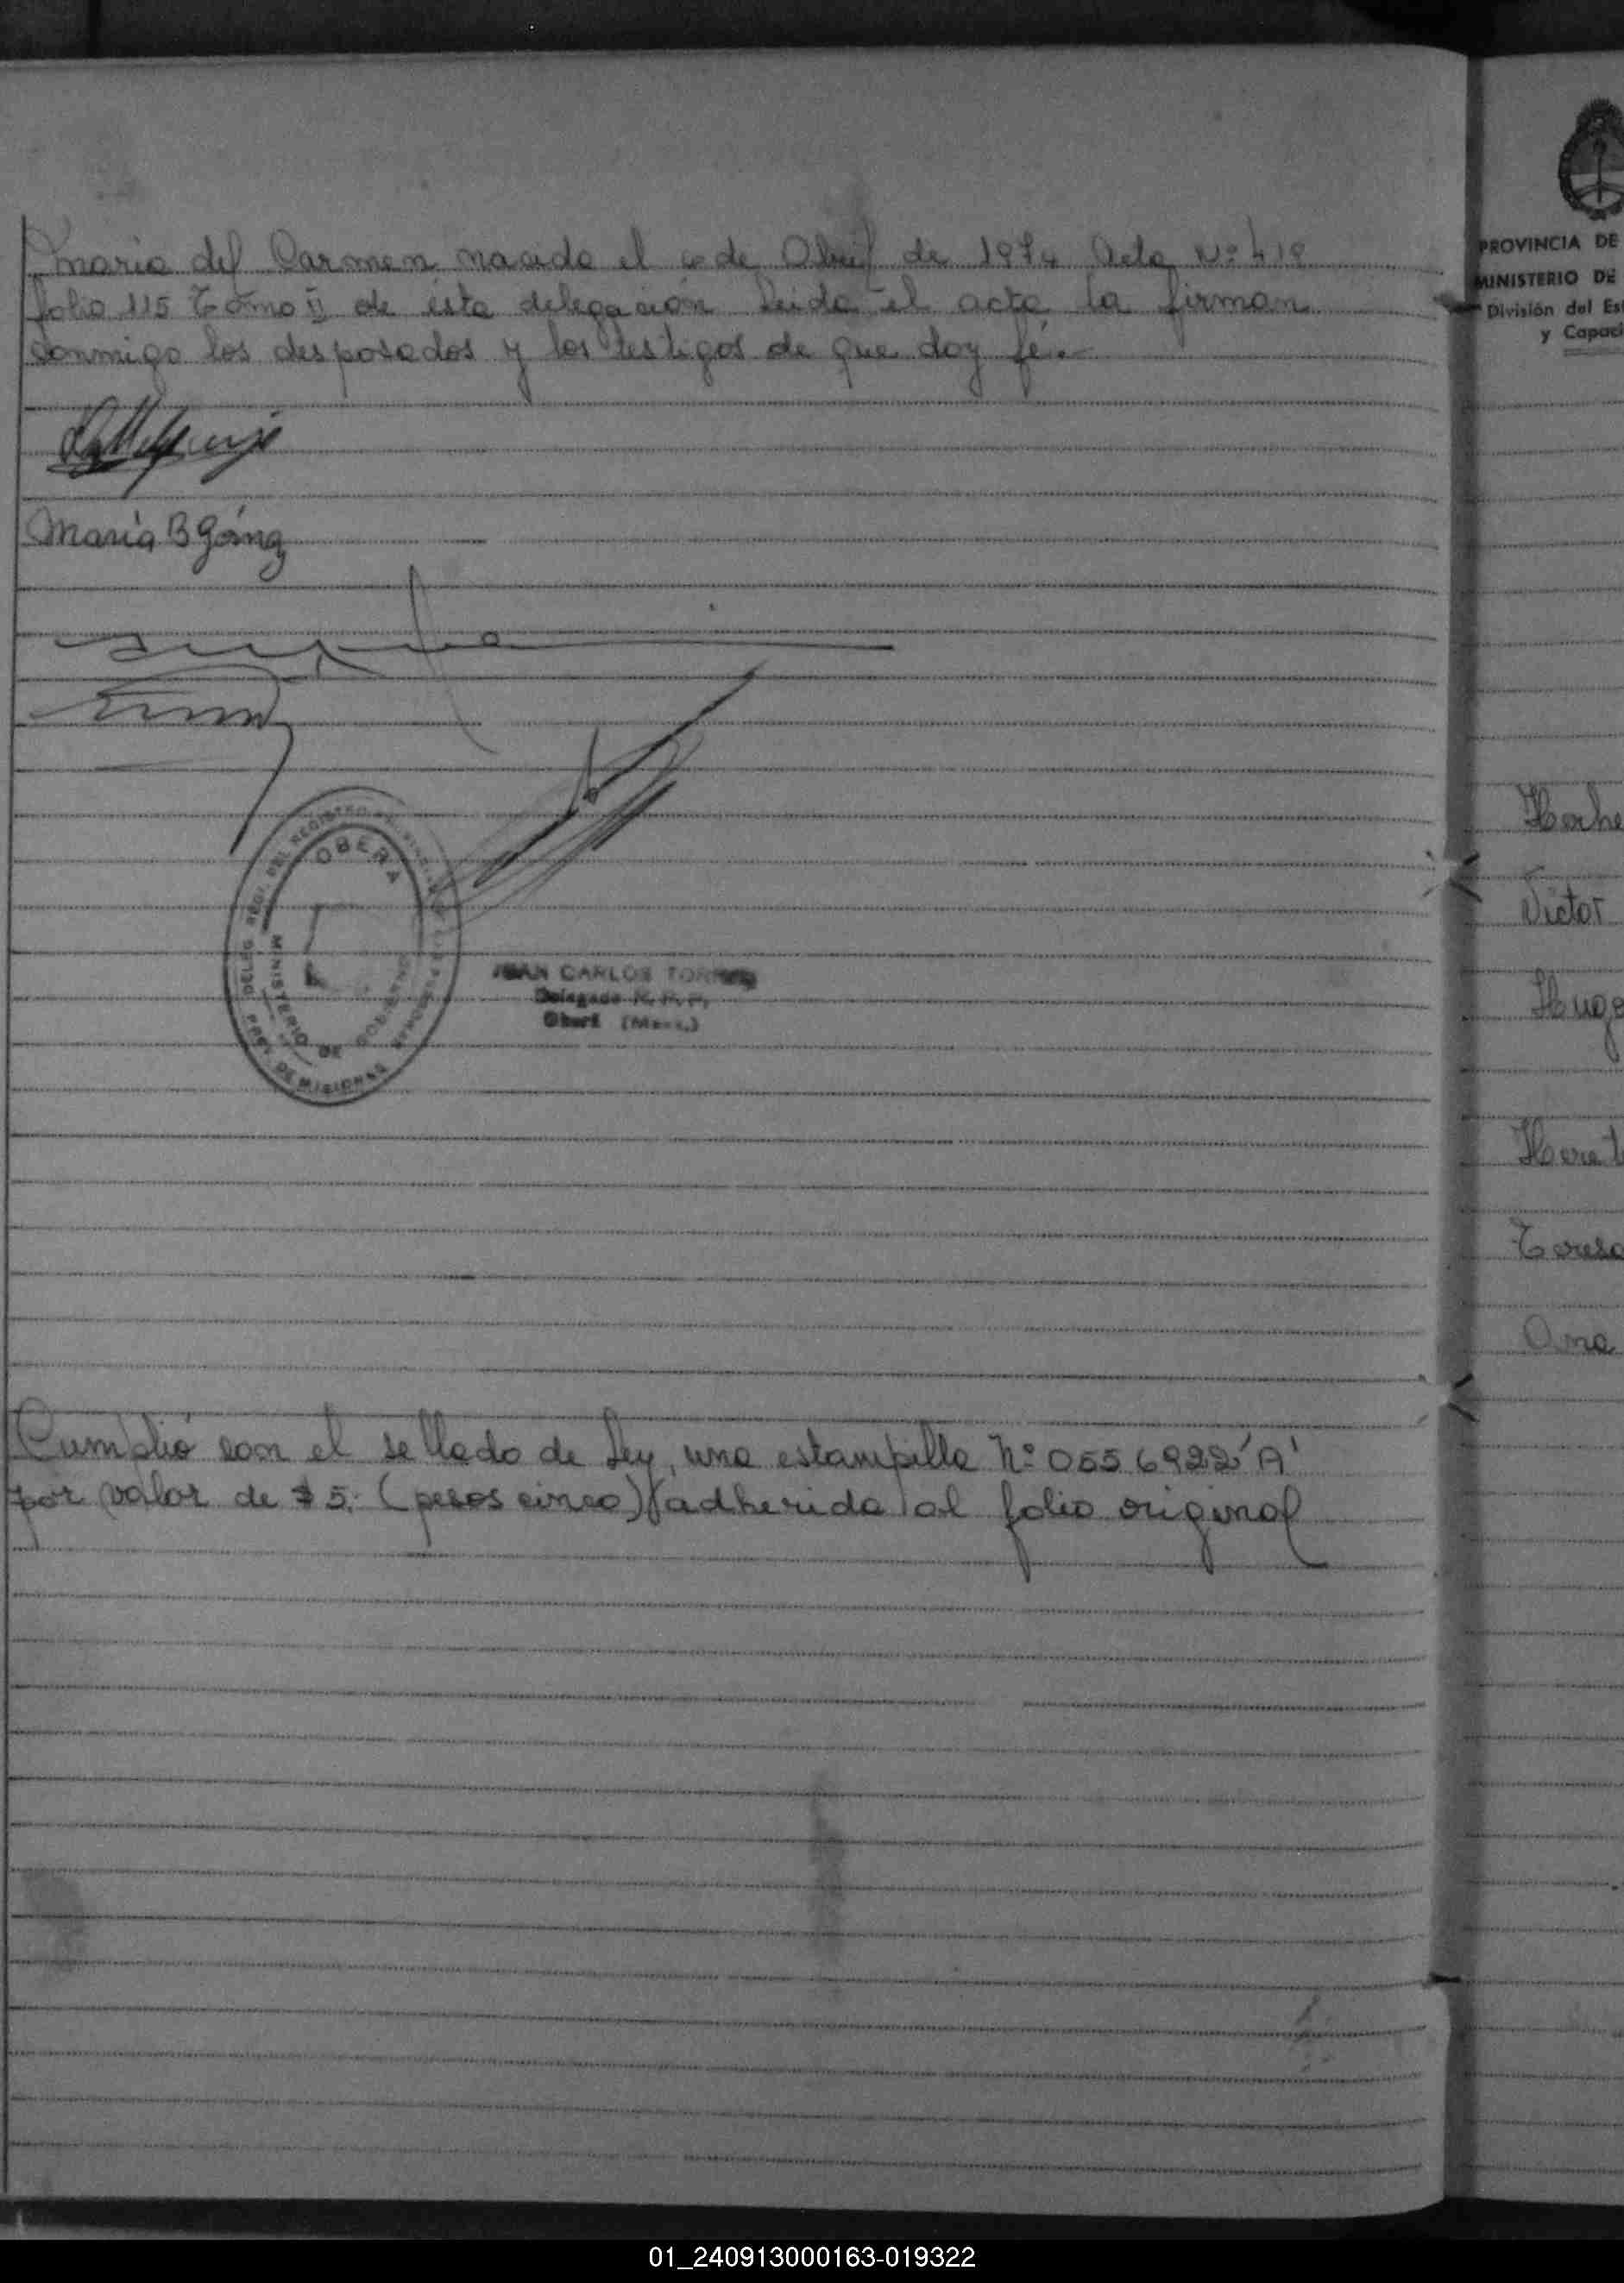 Maria del Carmen nacida el 6 de Abril de 1974 Acta Nº 418
folio 115 Tomo II de esta delegación Leida el acta la firman
conmigo los desposados y los testigos de que doy fé.-
Maria B Góng
DELEG. REGI. DEL REGISTRO
PERSONAS
PROV. DE MISIONES
OBERA
MINISTERIO DE GOBIERNO
JUAN CARLOS TORRES
Delegado R. P. P.
Oberá (Mnes.)
Cumplió con el sellado de Ley, una estampilla Nº 0556922 'A'
por valor de $ 5. (pesos cinco) adherida al folio original
PROVINCIA DE
MINISTERIO DE
División del Es
y Capaci
Victor
Hugo
Teresa
Ana
01_240913000163-019322